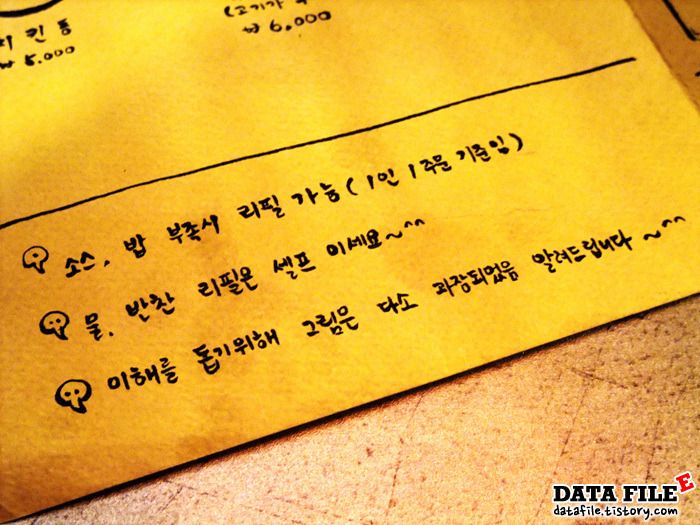 치킨동
₩ 5.000
(고기가
₩ 6.000
소스, 밥 부족시 리필 가능 ( 1인 1주문 기준임 )
물, 반찬 리필은 셀프 이세요~^^
이해를 돕기위해 그림은 다소 과장되었음 알려드립니다 ~^^
DATA FILE E
datafile.tistory.com